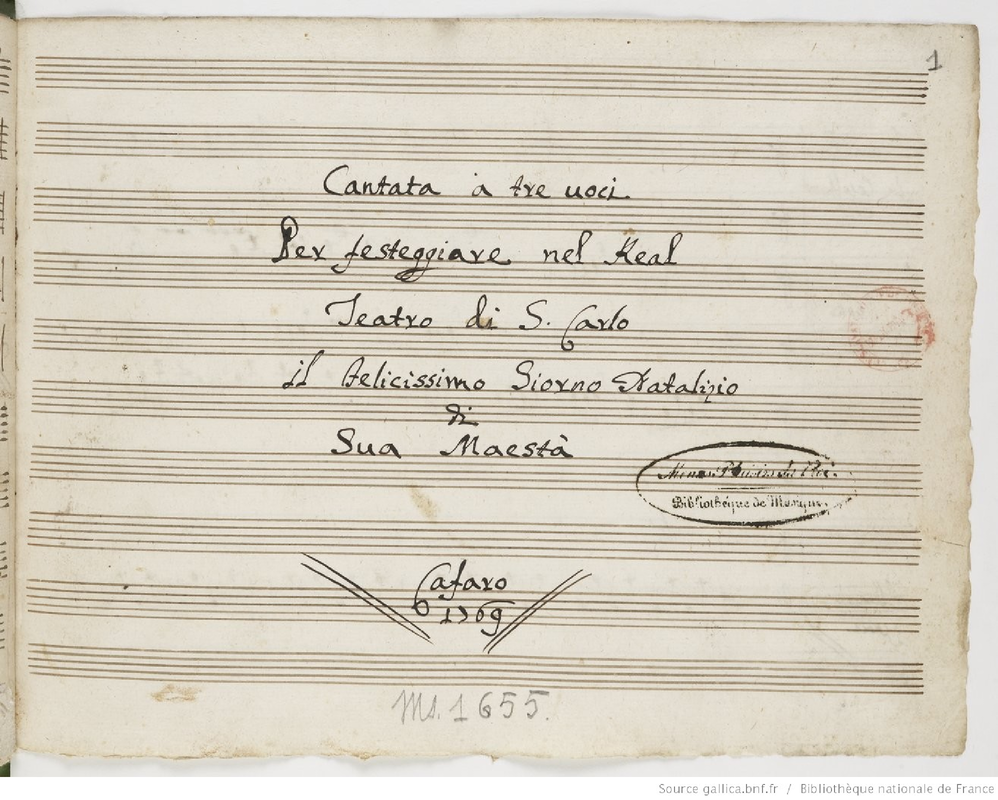 1
Cantata à tre uoci
Per festeggiare nel Real
Teatro di S. Carlo
il felicissimo Giorno Natalizio
di
Sua Maestà
Menus Plaisirs du Roi.
Bibliothéque de Musique.
Cafaro
1769
Ms. 1655.
Source gallica.bnf.fr / Bibliothèque nationale de France